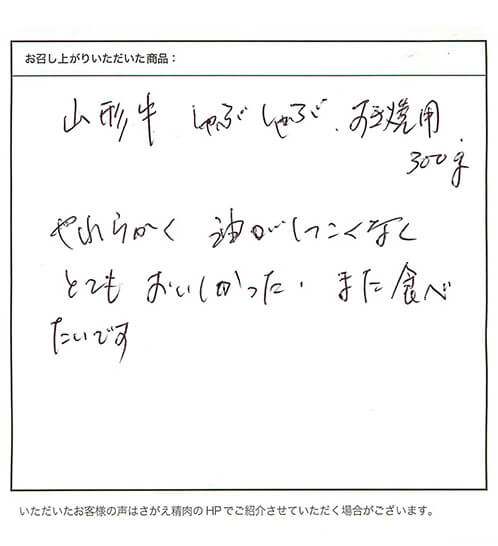 お召し上がりいただいた商品：
山形牛 しゃぶしゃぶ、すき焼用
300g
やわらかく 油がしつこくなく
とても おいしかった。また食べ
たいです
いただいたお客様の声はさがえ精肉のHPでご紹介させていただく場合がございます。